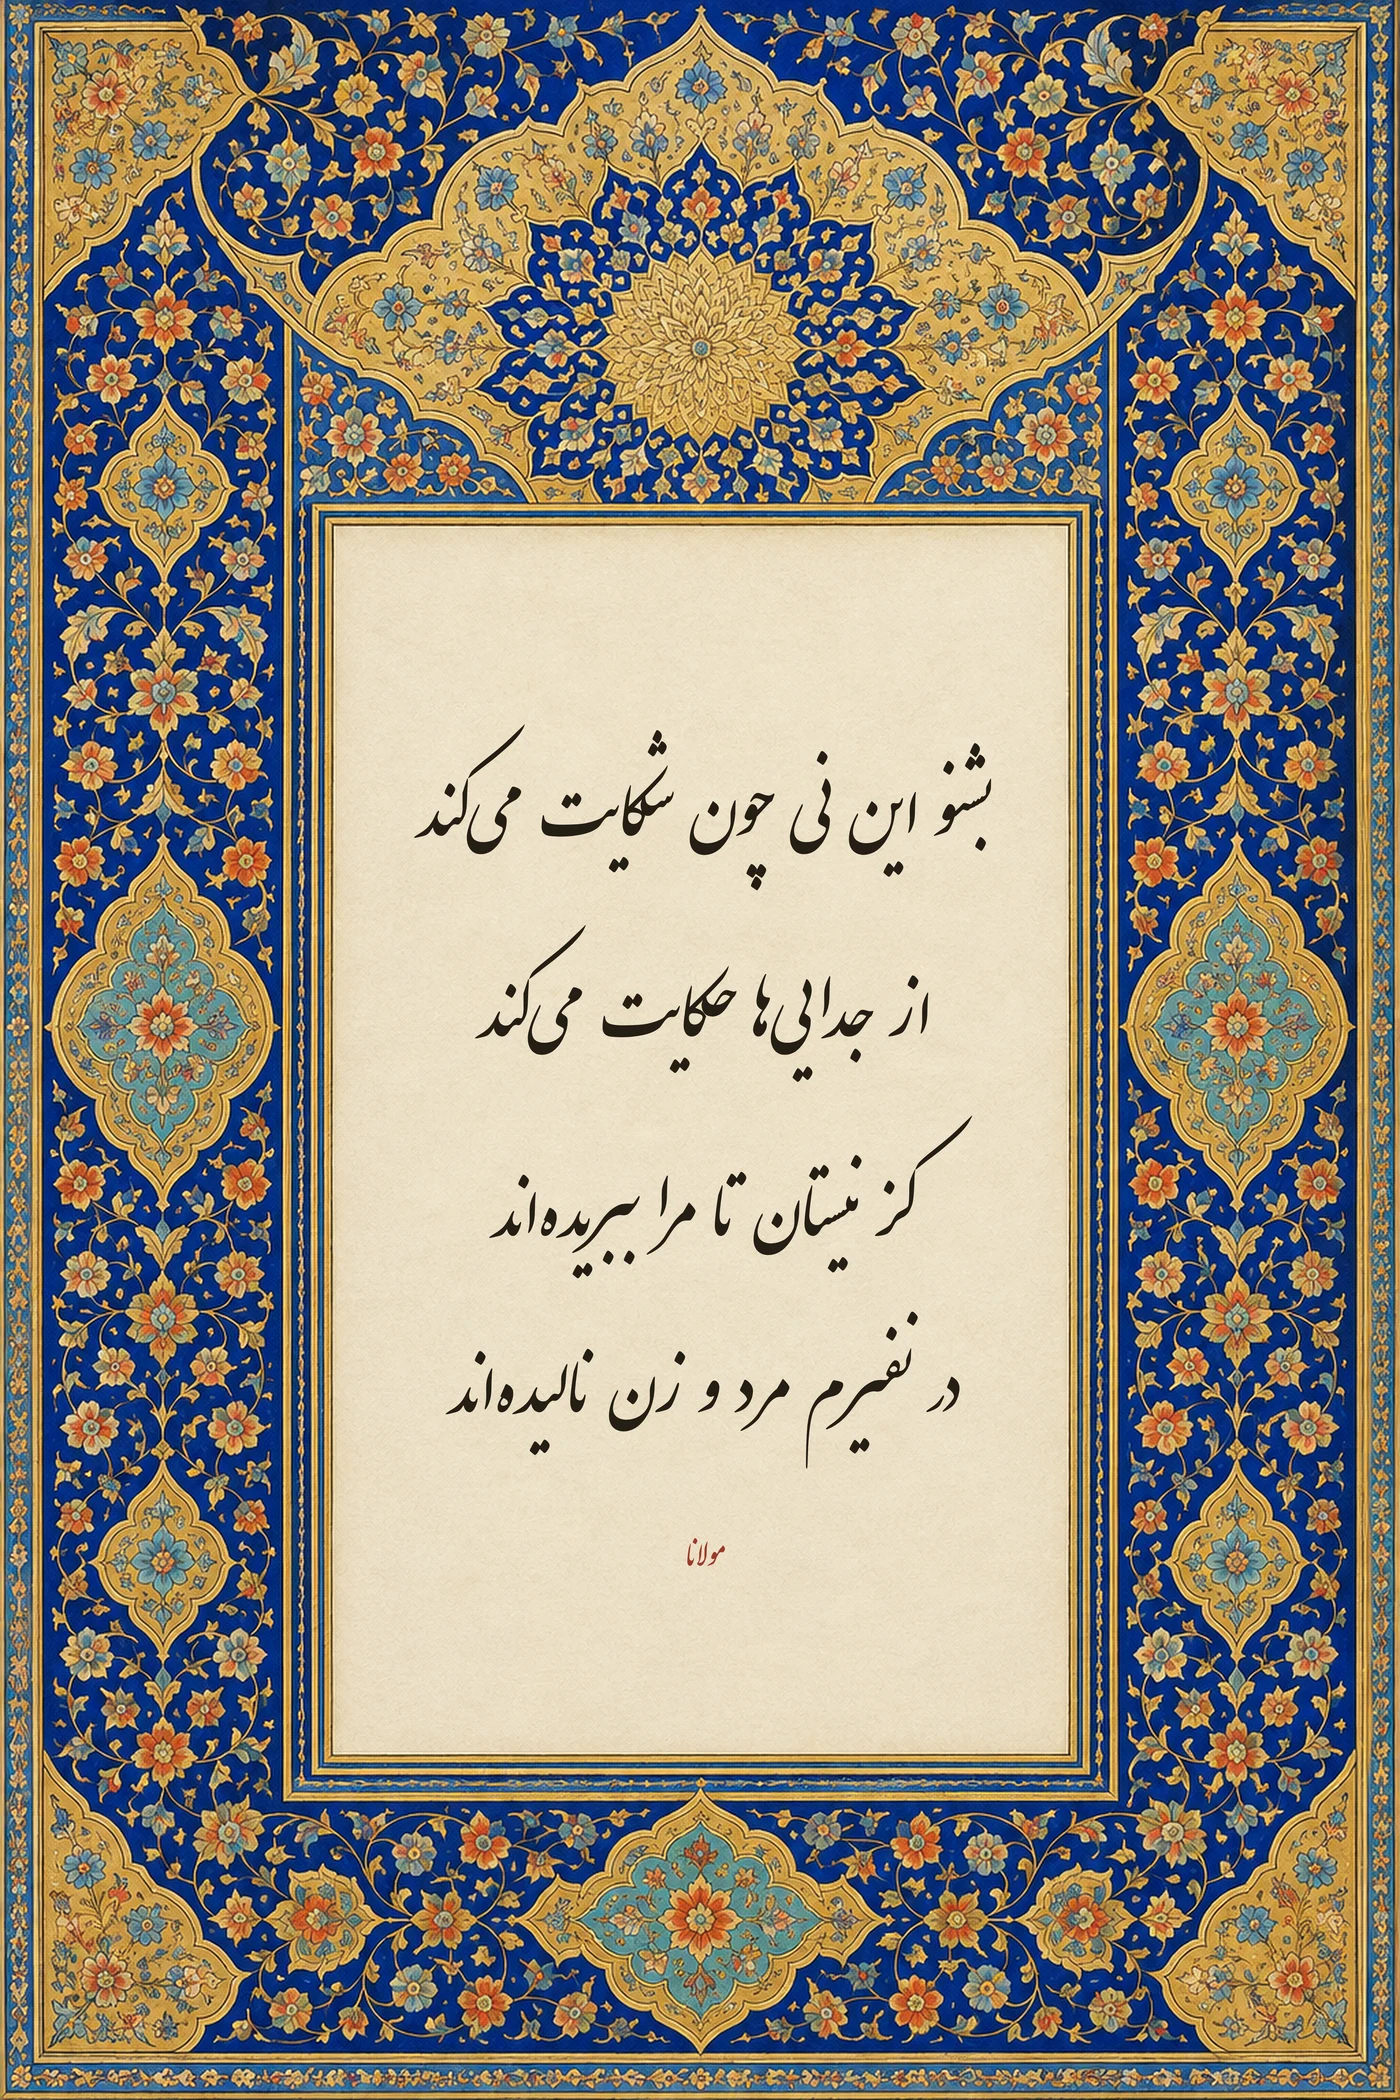 بشنو این نی چون شکایت می‌کند
از جدایی‌ها حکایت می‌کند
کز نیستان تا مرا ببریده‌اند
در نفیرم مرد و زن نالیده‌اند
مولانا